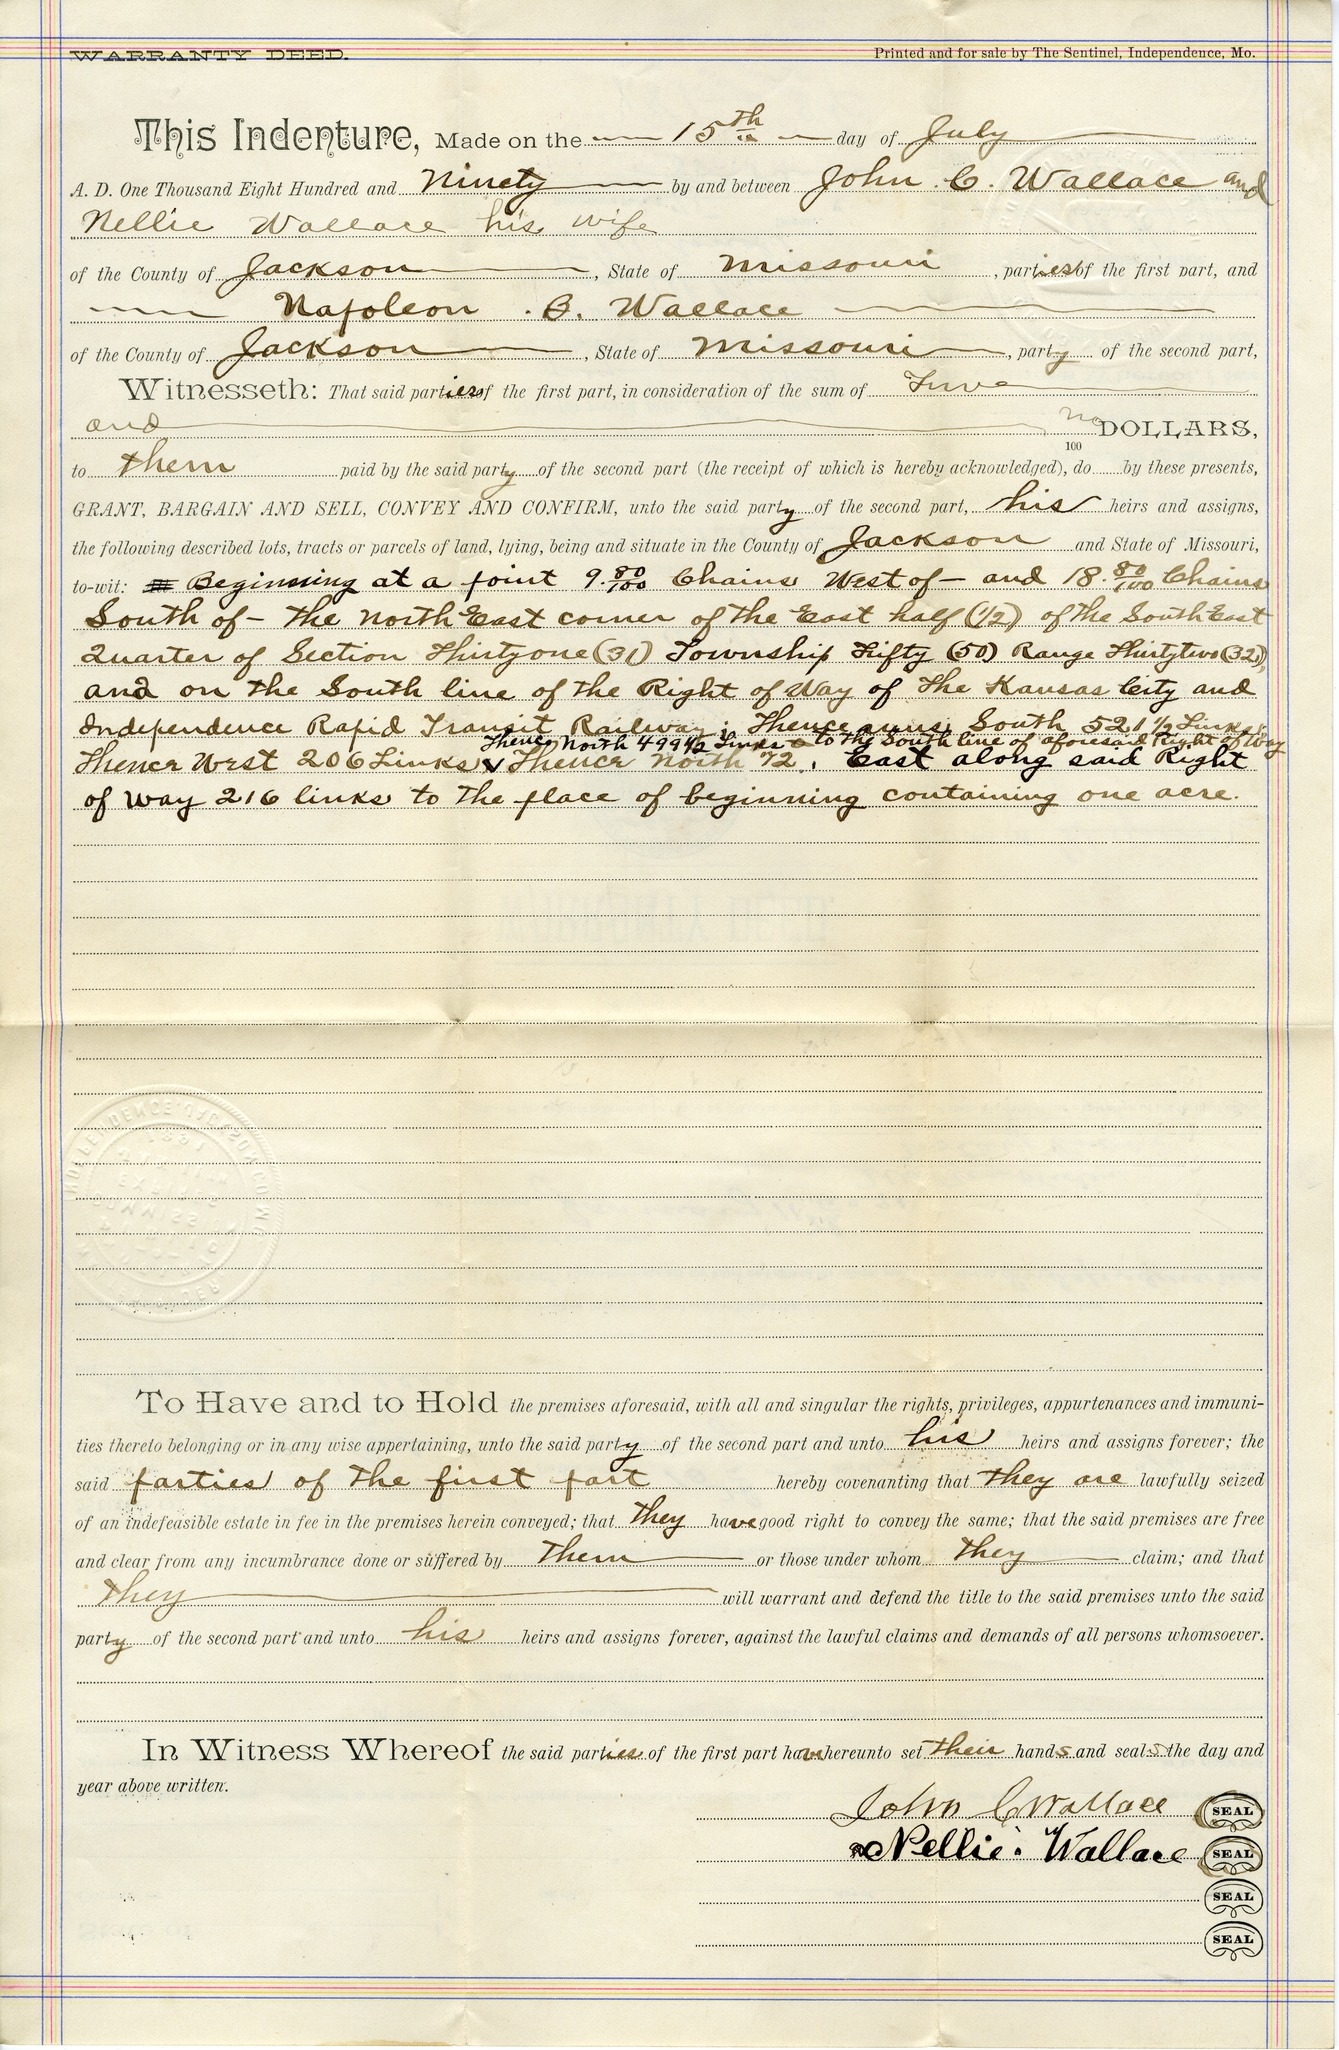 WARRANTY DEED.
Printed and for sale by The Sentinel, Independence, Mo.
This Indenture, Made on the 15th day of July
A. D. One Thousand Eight Hundred and Ninety by and between John C. Wallace and
Nellie Wallace his wife
of the County of Jackson, State of Missouri, parties of the first part, and
Napoleon B. Wallace
of the County of Jackson, State of Missouri, party of the second part,
Witnesseth: That said parties of the first part, in consideration of the sum of
and no/100 DOLLARS,
to them paid by the said party of the second part (the receipt of which is hereby acknowledged), do by these presents,
GRANT, BARGAIN AND SELL, CONVEY AND CONFIRM, unto the said party of the second part, his heirs and assigns,
the following described lots, tracts or parcels of land, lying, being and situate in the County of Jackson and State of Missouri,
to-wit: Beginning at a point 9.80/100 Chains West of - and 18.80/100 Chains
South of - the North East corner of the East half (1/2) of the South East
Quarter of Section Thirty one (31) Township Fifty (50) Range Thirty two (32),
and on the South line of the Right of Way of the Kansas City and
Independence Rapid Transit Railway; Thence runs South 521 1/2 Links
Thence North 499 1/2 Links to the South line of aforesaid Right of Way
Thence West 206 Links v Thence North 72. East along said Right
of Way 216 links to the place of beginning containing one acre.
To Have and to Hold the premises aforesaid, with all and singular the rights, privileges, appurtenances and immuni-
ties thereto belonging or in any wise appertaining, unto the said party of the second part and unto his heirs and assigns forever; the
said parties of the first part hereby covenanting that they are lawfully seized
of an indefeasible estate in fee in the premises herein conveyed; that they have good right to convey the same; that the said premises are free
and clear from any incumbrance done or suffered by them or those under whom they claim; and that
they will warrant and defend the title to the said premises unto the said
party of the second part and unto his heirs and assigns forever, against the lawful claims and demands of all persons whomsoever.
In Witness Whereof the said parties of the first part have hereunto set their hands and seals the day and
year above written.
John C Wallace SEAL
Nellie Wallace SEAL
SEAL
SEAL